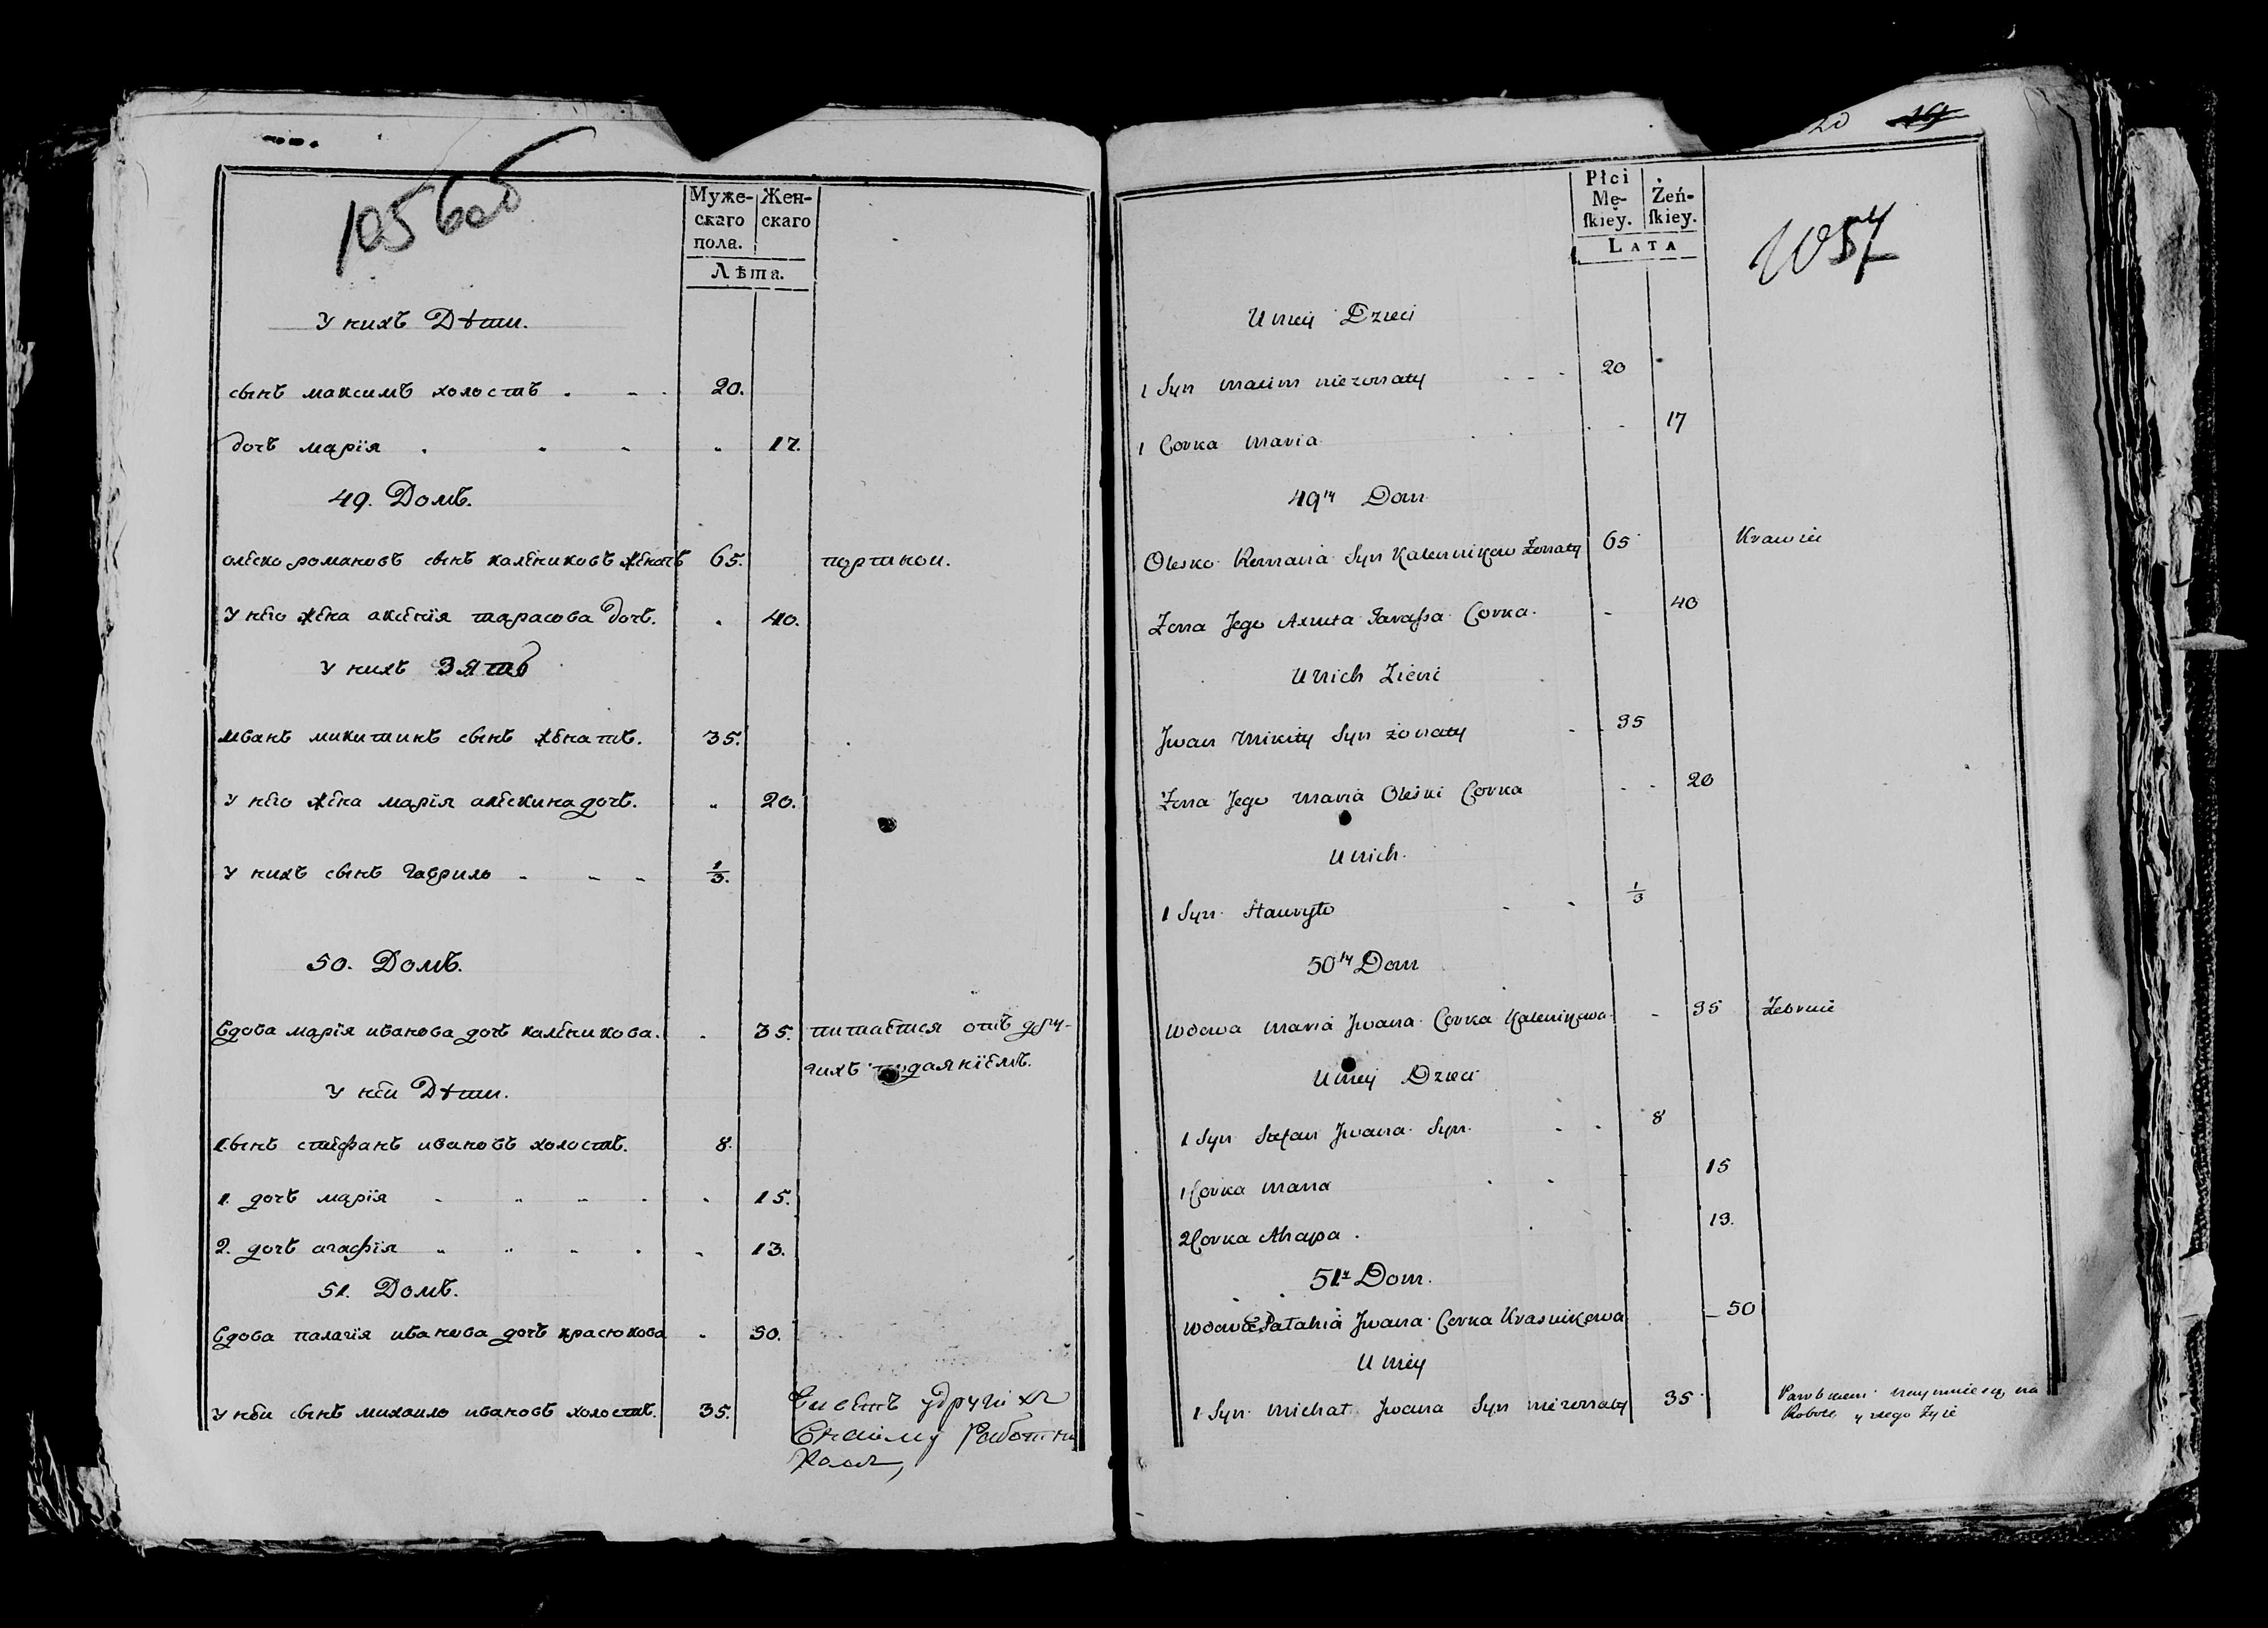 1056об
Муже-
скаго
пола.
Жен-
скаго
Лѣта.
У нихъ Дѣти.
сынъ максимъ холостъ . - . 20.
дочь марїя . . - „ 17.
49. Домъ.
олеско романовъ сынъ калениковъ женатъ 65. портной.
У него жена аксенїя тарасова дочь. . 40.
У нихъ Зять
иванъ микитинъ сынъ женатъ. 35.
У него жена марїя алескина дочь. „ 20.
У нихъ сынъ гаврило - - - 1/3.
50. Домъ.
вдова марїя иванова дочь каленикова. . 35. питается отъ дру-
гихъ подаянїемъ.
У ней Дѣти.
1. сынъ стефанъ ивановъ холостъ. 8.
1. дочь марїя - „ - . . 15.
2. дочь агафїя „ „ - . - 13.
51. Домъ.
вдова палагїя иванова дочь красюкова - 50.
У ней сынъ михайло ивановъ холостъ. 35.
Живетъ у других
20
1057
Płci
Mę-
skiey.
Żeń-
skiey.
LATA
U niey Dzieci
1 Syn Maxim niezonaty - - - 20
1 Corka Maria . . . - 17
49ty Dom
Olesko Romana Syn Kalennikow Zonaty 65 Krawiec
Zona Jego Axinia Tarassa Corka. - 40
U nich Zienć
Jwan Mikity Syn żonaty - . 35
Zona Jego Maria Oleski Corka . . - 20
U nich.
1 Syn Hawryło - - 1/3
50ty Dom
Wdowa Maria Jwana Corka Kalenikowa - 35 Żebrze
U niey Dzieci
1 Syn Stefan Jwana Syn. - - 8
1 Corka Maria . . . 15
2 Corka Ahapa . . . 13.
51y Dom.
Wdowa Pałahia Jwana Corka Krasnikowa - 50
U niey
1 Syn Michał Jwana Syn niezonaty 35 naymuie się na
Robotę y z tego żyie